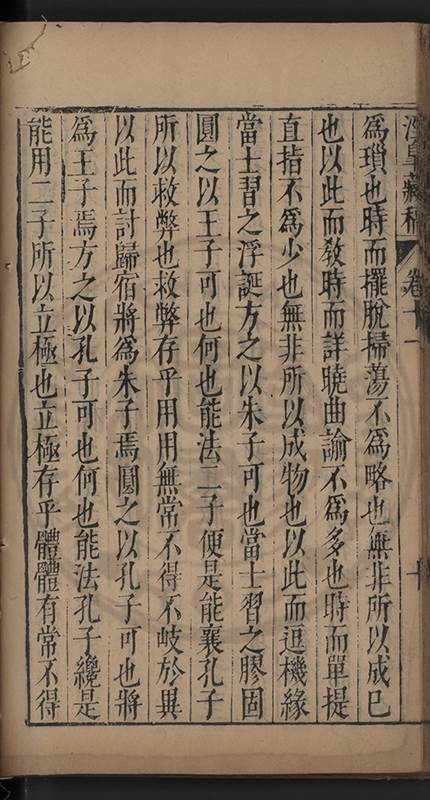 涇臯藏稿 卷十一 十
為瑣也時而擺脫掃蕩不為略也無非所以成已
也以此而敎時而詳曉曲諭不為多也時而單提
直指不為少也無非所以成物也以此而逗機緣
當士習之浮誕方之以朱子可也當士習之膠固
圓之以王子可也何也能法二子便是能襄孔子
所以救弊也救弊存乎用用無常不得不岐於異
以此而討歸宿將為朱子焉圓之以孔子可也將
為王子焉方之以孔子可也何也能法孔子纔是
能用二子所以立極也立極存乎體體有常不得